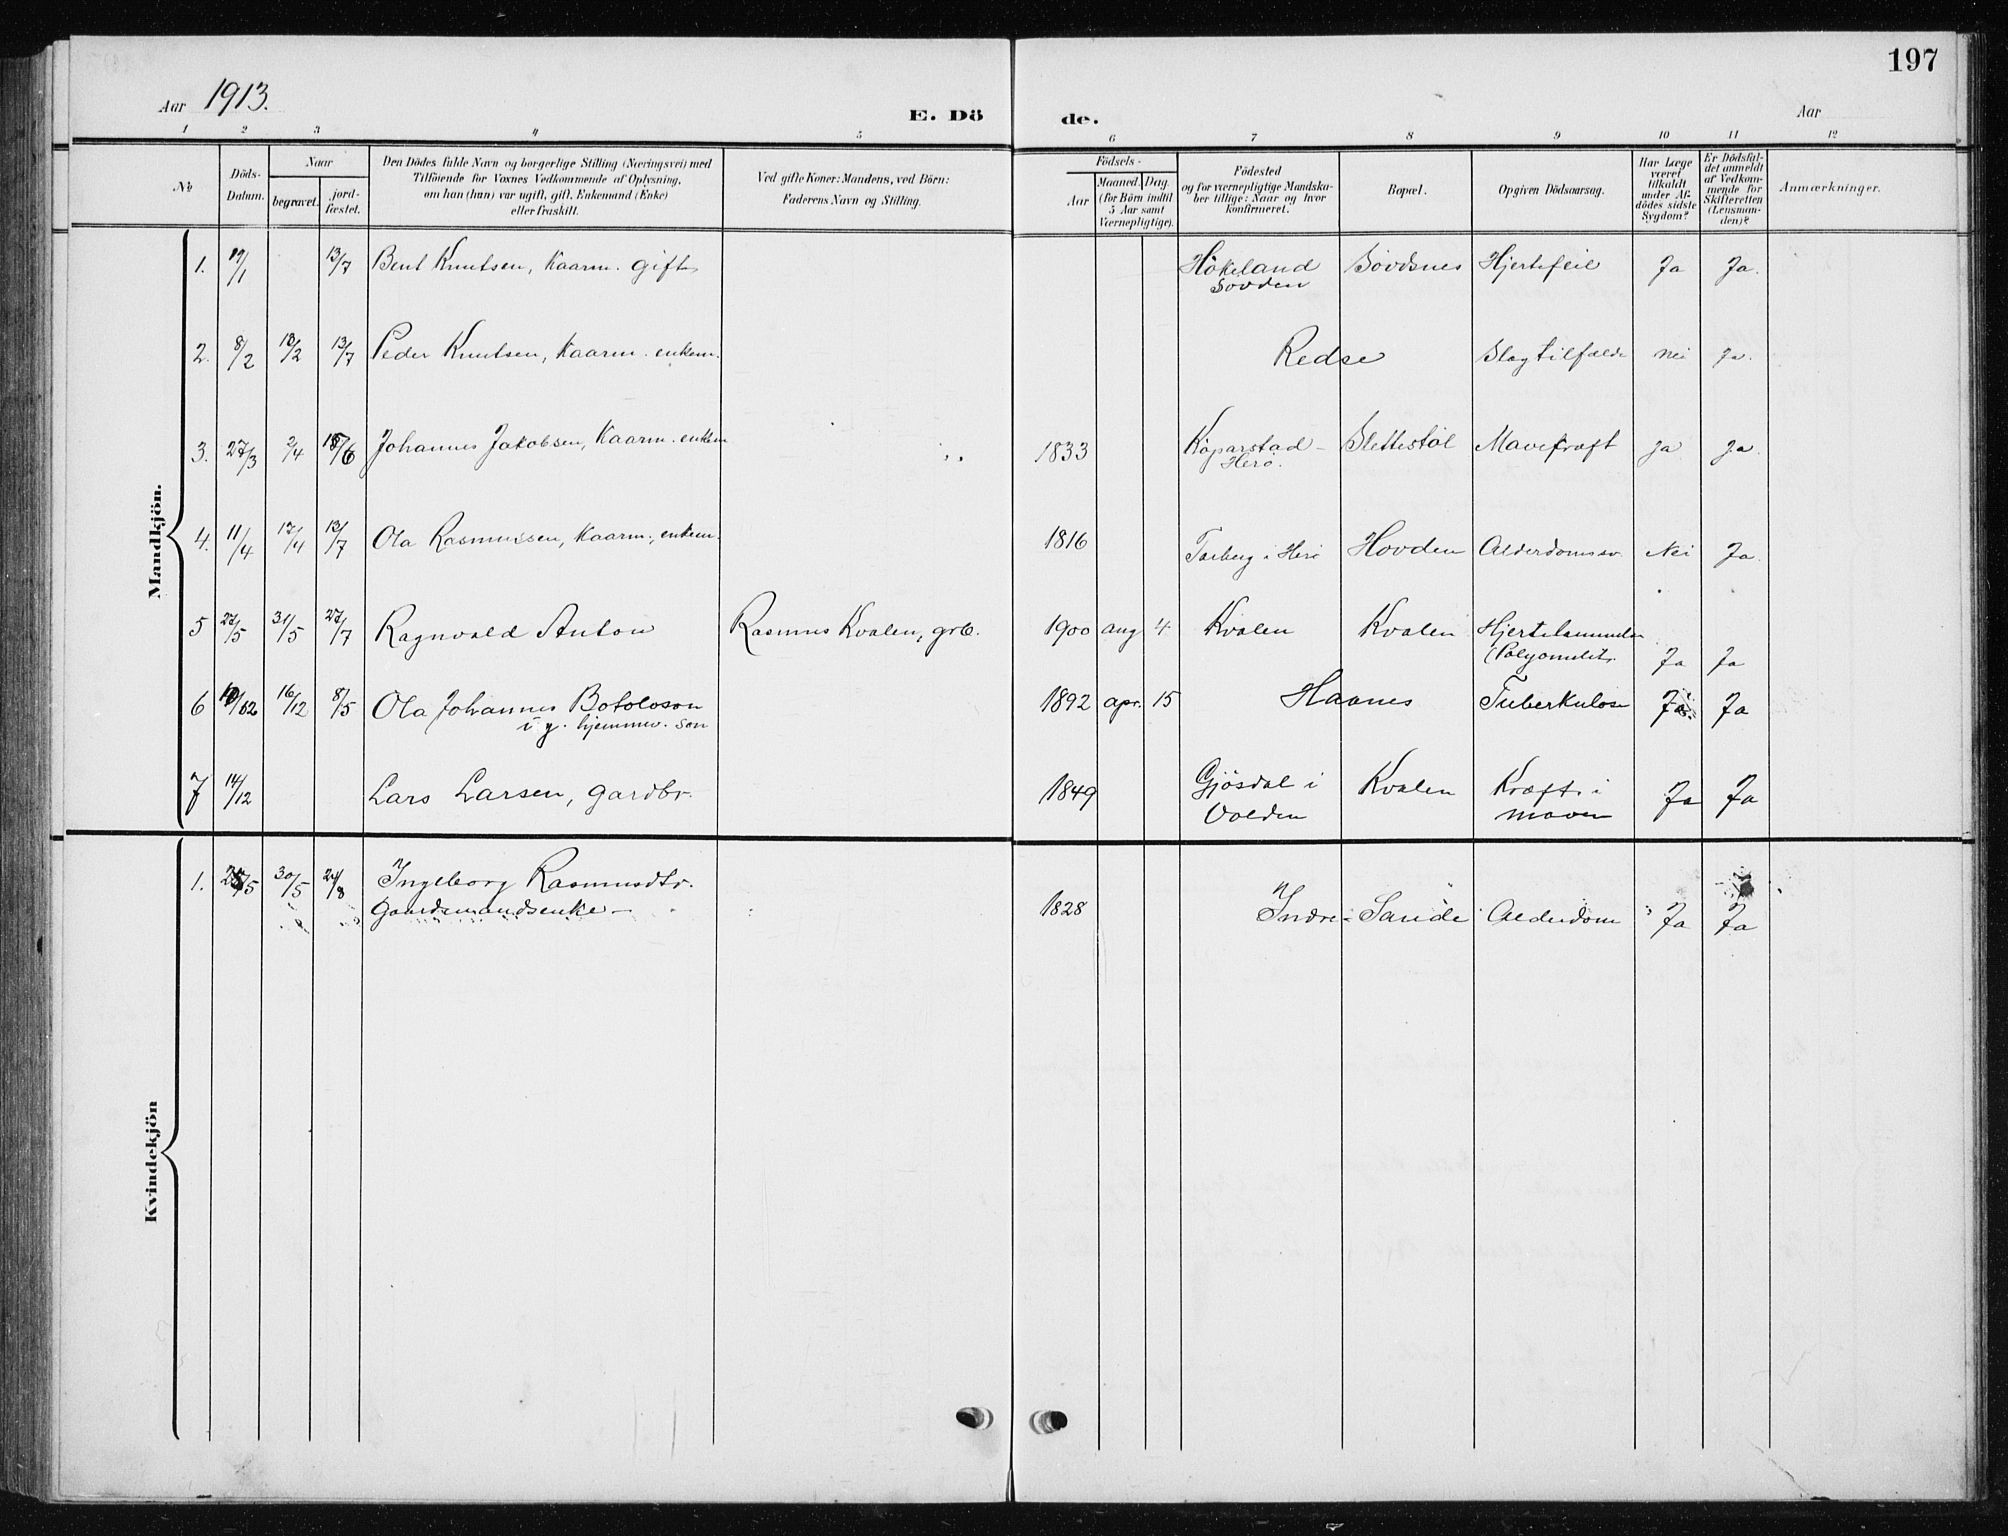 197
Aar 1913.
E. Dö de.
Aar
1 2 3 4 5 6 7 8 9 10 11 12
No
Döds-Datum.
Naar
begravet.
jord-fæstet.
Den Dödes fulde Navn og borgerlige Stilling (Næringsvei) med
Tilföiende for Voxnes Vedkommende af Oplysning,
om han (hun) var ugift, gift, Enkemand (Enke)
eller fraskilt.
Ved gifte Koner: Mandens, ved Börn:
Faderens Navn og Stilling.
Födsels-
Aar
Maaned. Dag.
(for Börn indtil
5 Aar samt
Værnepligtige).
Födested
og for værnepligtige Mandska-
ber tillige: Naar og hvor
konfirmeret.
Bopæl.
Opgiven Dödsaarsag.
Har Læge
været
tilkaldt
under Af-
dödes sidste
Sygdom?
Er Dödsfal-
det anmeldt
af Vedkom-
mende for
Skifteretten
(Lensman-
den)?
Anmærkninger.
Mandkjön.
1. 19/1 13/7 Bent Knutsen, Kaarm. gift Hökeland Sövdsnes Hjertefeil Ja Ja.
Sövden
2. 8/2 18/2 13/7 Peder Knutsen, Kaarm. enkem. Redse Slagtilfælde Nei Ja.
3. 27/3 2/4 /6 Johannes Jakobsen, Kaarm. enkem 1833 Köparstad - Slettestöl Mavekræft Ja Ja.
Herö.
4. 11/4 17/4 13/7 Ola Rasmussen, Kaarm., enkem. 1816 Tarberg i Herö Hovden Alderdomssv. Nei Ja.
5 27/5 31/5 27/7 Ragnvald Anton Rasmus Kvalen, grb. 1900 aug 4 Kvalen Kvalen Hjertelammelse
Ja Ja
6 16/12 8/5 Ola Johannes Botolvson 1892 apr. 15 Haanes Tuberkulose Ja Ja
i y. hjemmev. søn
7 14/12 Lars Larsen, gardbr. 1849 Gjösdal i Kvalen Kræft i Ja Ja
Volden maven
Kvindekjön
1. 30/5 24/8 Ingeborg Rasmusdtr.
Gaardsmandsenke - 1828 Indre - Sande Alderdom Ja Ja